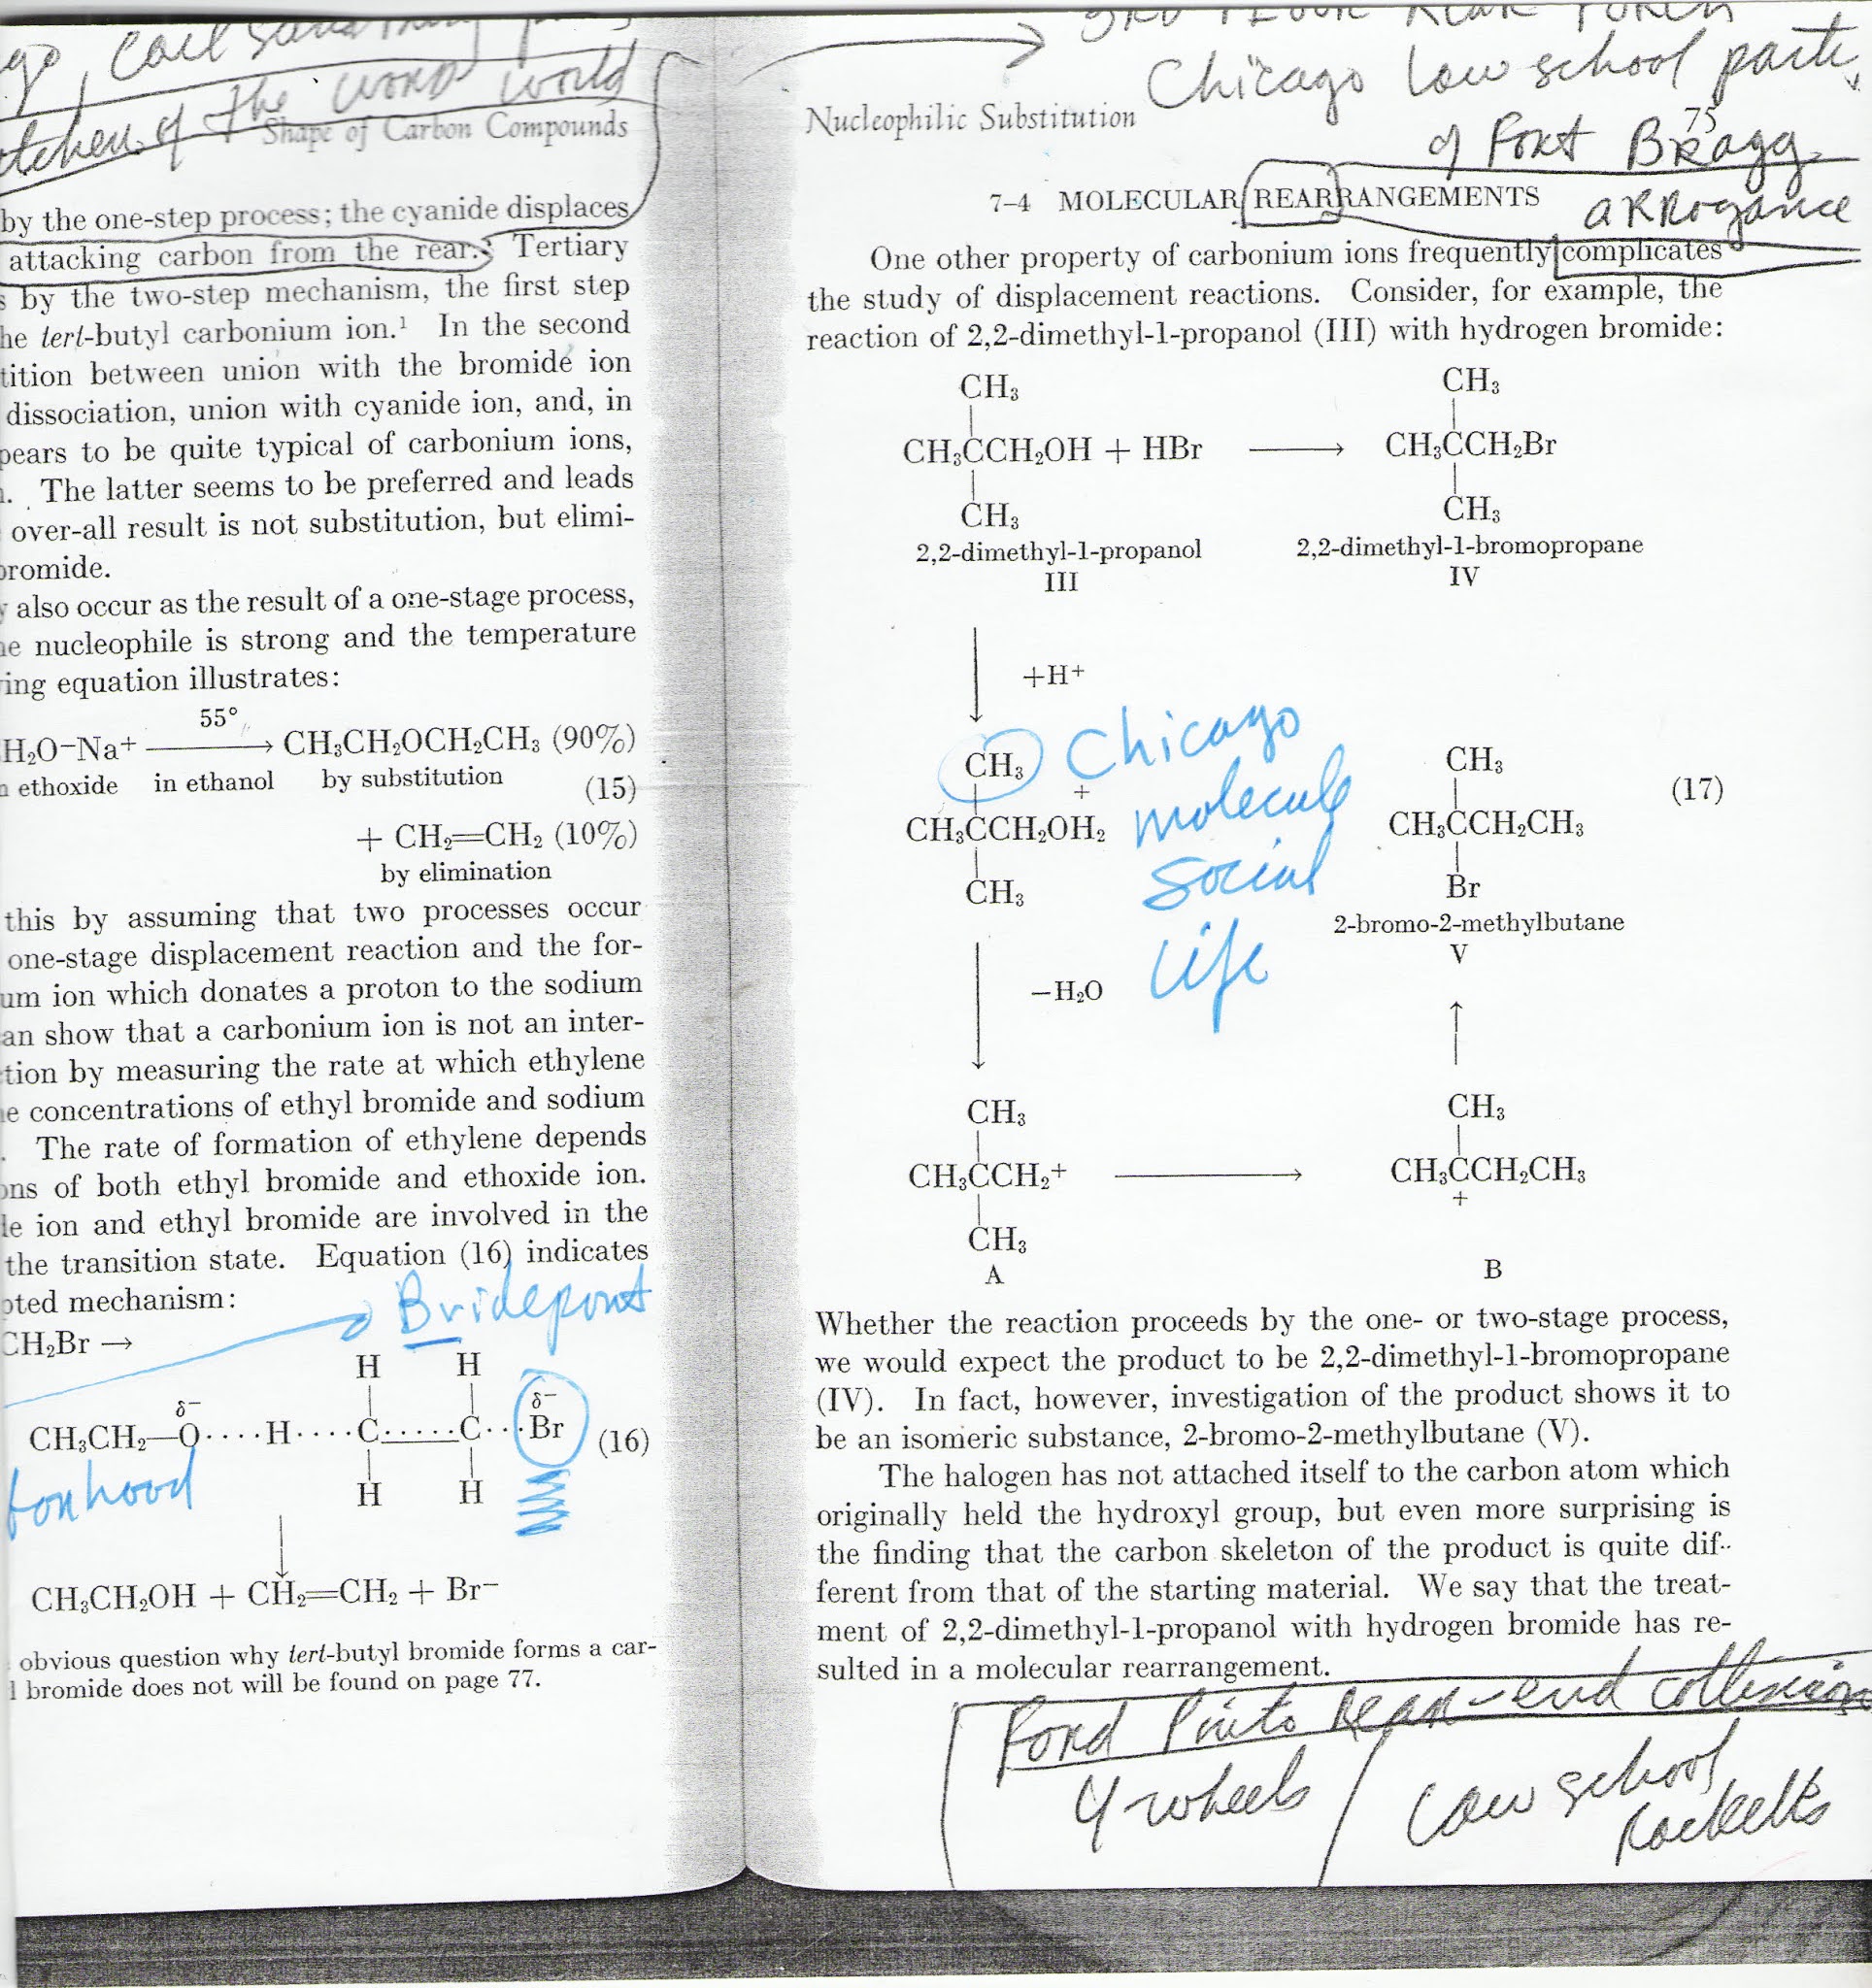 Shape of Carbon Compounds
of the word world
by the one-step process; the cyanide displaces
attacking carbon from the rear. Tertiary
s by the two-step mechanism, the first step
he tert-butyl carbonium ion.¹ In the second
tition between union with the bromide ion
dissociation, union with cyanide ion, and, in
pears to be quite typical of carbonium ions,
. The latter seems to be preferred and leads
over-all result is not substitution, but elimi-
bromide.
y also occur as the result of a one-stage process,
he nucleophile is strong and the temperature
ing equation illustrates:
55°
H₂O⁻Na⁺ ⟶ CH₃CH₂OCH₂CH₃ (90%)
ethoxide in ethanol by substitution
(15)
+ CH₂=CH₂ (10%)
by elimination
this by assuming that two processes occur
one-stage displacement reaction and the for-
um ion which donates a proton to the sodium
an show that a carbonium ion is not an inter-
tion by measuring the rate at which ethylene
e concentrations of ethyl bromide and sodium
. The rate of formation of ethylene depends
ons of both ethyl bromide and ethoxide ion.
le ion and ethyl bromide are involved in the
the transition state. Equation (16) indicates
pted mechanism:
Bridepont
CH₂Br →
H H
δ⁻ δ⁻
CH₃CH₂—O····H····C·····C···Br (16)
H H
fonhood
CH₃CH₂OH + CH₂=CH₂ + Br⁻
obvious question why tert-butyl bromide forms a car-
l bromide does not will be found on page 77.
3RD FLOOR REAR PORCH
Chicago Law school parti
Nucleophilic Substitution 75
of FORT BRAgg
7–4 MOLECULAR REARRANGEMENTS
aRRogance
One other property of carbonium ions frequently complicates
the study of displacement reactions. Consider, for example, the
reaction of 2,2-dimethyl-1-propanol (III) with hydrogen bromide:
CH₃ CH₃
CH₃CCH₂OH + HBr ⟶ CH₃CCH₂Br
CH₃ CH₃
2,2-dimethyl-1-propanol 2,2-dimethyl-1-bromopropane
III IV
+H⁺
Chicago
CH₃ CH₃
+ (17)
molecule
CH₃CCH₂OH₂ CH₃CCH₂CH₃
social
CH₃ Br
2-bromo-2-methylbutane
life
V
−H₂O
CH₃ CH₃
CH₃CCH₂⁺ ⟶ CH₃CCH₂CH₃
+
CH₃
A B
Whether the reaction proceeds by the one- or two-stage process,
we would expect the product to be 2,2-dimethyl-1-bromopropane
(IV). In fact, however, investigation of the product shows it to
be an isomeric substance, 2-bromo-2-methylbutane (V).
The halogen has not attached itself to the carbon atom which
originally held the hydroxyl group, but even more surprising is
the finding that the carbon skeleton of the product is quite dif-
ferent from that of the starting material. We say that the treat-
ment of 2,2-dimethyl-1-propanol with hydrogen bromide has re-
sulted in a molecular rearrangement.
Ford Pinto Rear-end collision
4 wheels / Law school